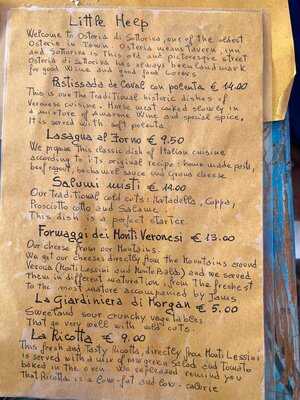 Little Help
Welcome to Osteria di Sottoriva, one of the oldest
Osteria in Town. Osteria means tavern, inn
and Sottoriva is this old and picturesque street
Osteria di Sottoriva has always been land mark
for good Wine and good food lovers
Pastissada de Caval con polenta € 14.00
This is our The Traditional historic dishes of
Veronese cuisine. Horse meat cooked slowly in
a mixture of Amarone Wine and special spices,
It is served with soft polenta
Lasagna al Forno € 9.50
We prepare This classic dish of Italian cuisine
according to its original recipe: home made pasta,
beef ragout, bechamel sauce and Grana cheese
Salumi misti € 12.00
Our Traditional cold cuts: Mortadella, Coppa,
Prosciutto cotto and Salame
This dish is a perfect starter
Formaggi dei Monti Veronesi € 13.00
Our cheese from our Mountains.
We get our cheeses directly from the Mountains around
Verona (Monti Lessini and Monte Baldo) and we served
Them in different maturation, from the freshest
to the most mature accompanied by Jams
La Giardiniera di Morgan € 5.00
Sweet and sour crunchy vegetables
That go very well with cold cuts.
La Ricotta € 9.00
This fresh and Tasty Ricotta, directly from Monti Lessini
is served with a mix of green Salad and Tomato
baked in the oven. We remind you
that Ricotta is a low-fat and low-calorie